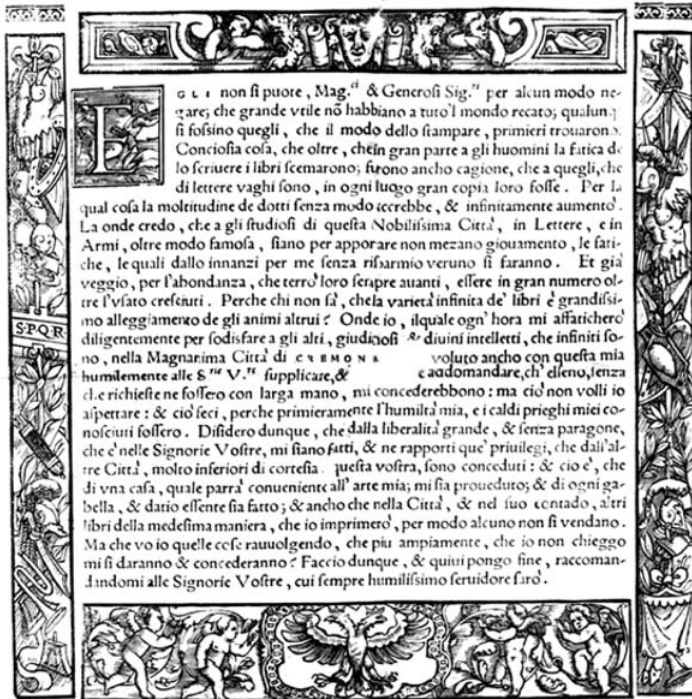 S·P·Q·R
EGLI non ſi puote, Mag.ci & Generoſi Sig.ri per alcun modo ne-
gare; che grande vtile nō habbiano a tuto'l mondo recato; qualunq;
ſi foſsino quegli, che il modo dello ſtampare, primieri trouarono.
Concioſia coſa, che oltre, chein gran parte a gli huomini la fatica de
lo ſcriuere i libri ſcemarono; furono ancho cagione, che a quegli, che
di lettere vaghi ſono, in ogni luogo gran copia loro foſſe. Per la
qual coſa la moltitudine de dotti ſenza modo accrebbe, & infinitamente aumento'.
La onde credo, che a gli ſtudioſi di queſta Nobiliſsima Citta', in Lettere, e in
Armi, oltre modo famoſa, ſiano per apporare non mezano giouamento, le fati-
che, le quali dallo innanzi per me ſenza riſparmio veruno ſi faranno. Et gia'
veggio, per l'abondanza, che terro' loro ſempre auanti, eſſere in gran numero ol-
tre l'vſato creſciuti. Perche chi non ſa', chela varieta' infinita de' libri e' grandiſsi-
mo alleggiamento de gli animi altrui? Onde io, ilquale ogn' hora mi affatichero'
diligentemente per ſodisfare a gli alti, giudicioſi & diuini intelletti, che infiniti ſo-
no, nella Magnanima Citta' di CREMONA voluto ancho con queſta mia
humilemente alle S.rie V.re ſupplicare, & e addomandare, ch' elleno, ſenza
che richieſte ne foſſero con larga mano, mi concederebbono: ma cio' non volli io
aſpettare: & cio' feci, perche primieramente l'humilta' mia, e i caldi prieghi miei co-
noſciuti foſſero. Diſidero dunque, che dalla liberalita' grande, & ſenza paragone,
che e' nelle Signorie Voſtre, mi ſiano fatti, & ne rapporti que' priuilegi, che dall'al-
tre Citta', molto inferiori di corteſia queſta voſtra, ſono conceduti: & cio e', che
di vna caſa, quale parra' conueniente all' arte mia; mi ſia proueduto; & di ogni ga-
bella, & datio eſſente ſia fatto; & ancho che nella Citta', & nel ſuo contado, altri
libri della medeſima maniera, che io imprimero', per modo alcuno non ſi vendano.
Ma che vo io quelle coſe rauuolgendo, che piu ampiamente, che io non chieggo
mi ſi daranno & concederanno? Faccio dunque, & quiui pongo fine, raccoman-
dandomi alle Signorie Voſtre, cui ſempre humiliſsimo ſeruidore ſaro'.